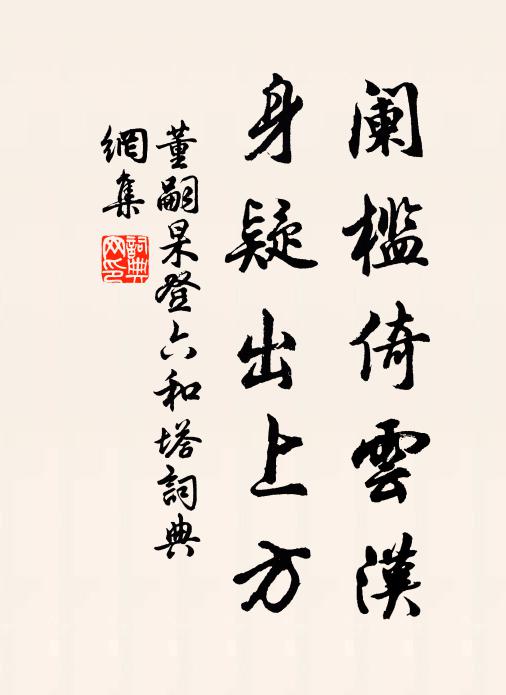 阑槛倚雲漢
身疑出上方
董嗣杲登六和塔詞典
網集
詞典
网印